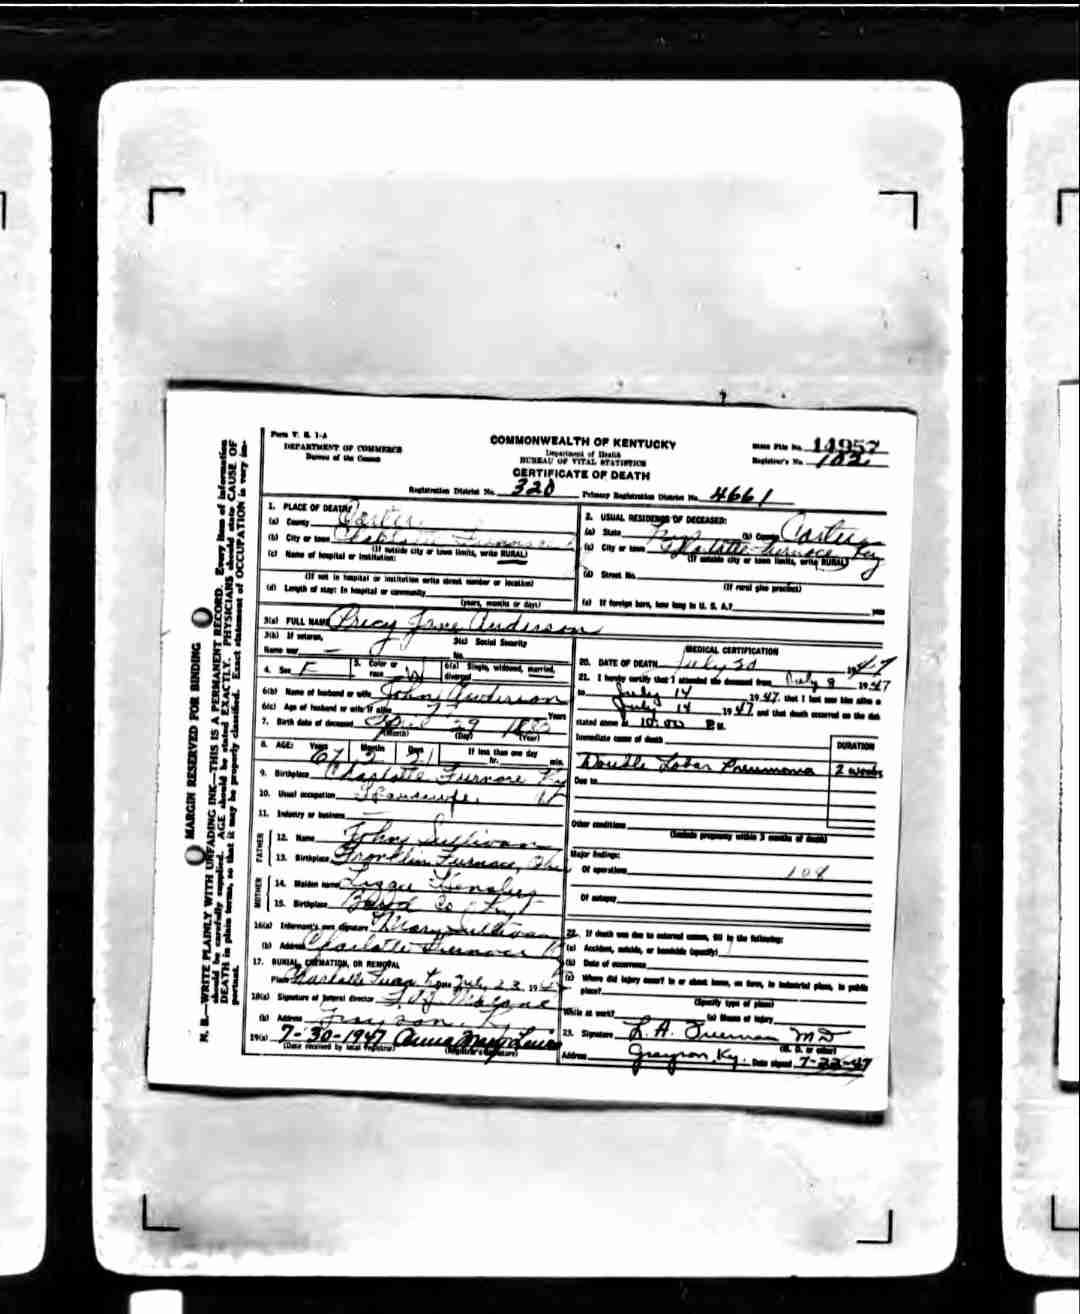 Form V. S. 1-A
DEPARTMENT OF COMMERCE
Bureau of the Census
COMMONWEALTH OF KENTUCKY
Department of Health
BUREAU OF VITAL STATISTICS
CERTIFICATE OF DEATH
State File No. 14957
Registrar's No. 102
Registration District No. 320 Primary Registration District No. 4661
MARGIN RESERVED FOR BINDING
N. B.—WRITE PLAINLY WITH UNFADING INK—THIS IS A PERMANENT RECORD. Every item of information
should be carefully supplied. AGE should be stated EXACTLY. PHYSICIANS should state CAUSE OF
DEATH in plain terms, so that it may be properly classified. Exact statement of OCCUPATION is very im-
portant.
1. PLACE OF DEATH:
(a) County Carter
(b) City or town Charlotte Furnace
(If outside city or town limits, write RURAL)
(c) Name of hospital or institution:
(If not in hospital or institution write street number or location)
(d) Length of stay: In hospital or community
(years, months or days)
2. USUAL RESIDENCE OF DECEASED:
(a) State Ky (b) County Carter
(c) City or town Charlotte Furnace Ky
(If outside city or town limits, write RURAL)
(d) Street No.
(If rural give precinct)
(e) If foreign born, how long in U. S. A.? years
3(a) FULL NAME Jane Anderson
3(b) If veteran,
Name war —
3(c) Social Security
No.
4. Sex F
5. Color or
race W
6(a) Single, widowed, married,
divorced
6(b) Name of husband or wife John Anderson
6(c) Age of husband or wife if alive Years
7. Birth date of deceased April 29 1880
(Month) (Day) (Year)
8. AGE: Years 67 Months 2 Days 21 If less than one day
hr. min.
9. Birthplace Charlotte Furnace Ky
10. Usual occupation Housewife
11. Industry or business
FATHER
12. Name John Sullivan
13. Birthplace Franklin Furnace, Ohio
MOTHER
14. Maiden name Lizzie Hensley
15. Birthplace Boyd Co Ky
16(a) Informant's own signature Mary Sullivan
(b) Address Charlotte Furnace K
17. BURIAL, CREMATION, OR REMOVAL
Place Charlotte Furn Date July 23 1947
18(a) Signature of funeral director Malone
(b) Address Grayson, Ky
19(a) 7-30-1947 Anna Mary Lewis
(Date received by local registrar) (Registrar's Signature)
MEDICAL CERTIFICATION
20. DATE OF DEATH July 20 1947
21. I hereby certify that I attended the deceased from July 8 1947
to July 14 1947, that I last saw him alive on
July 14 1947 and that death occurred on the date
stated above at 10:00 P M.
Immediate cause of death
DURATION
Double Lobar Pneumonia 2 weeks
Due to
Other conditions
(Include pregnancy within 3 months of death)
Major findings:
Of operations 108
Of autopsy
22. If death was due to external causes, fill in the following:
(a) Accident, suicide, or homicide (specify)
(b) Date of occurrence
(c) Where did injury occur? In or about home, on farm, in industrial place, in public
place?
(Specify type of place)
While at work? (e) Means of injury
23. Signature L. A. MD
(M. D. or other)
Address Grayson, Ky. Date signed 7-22-47